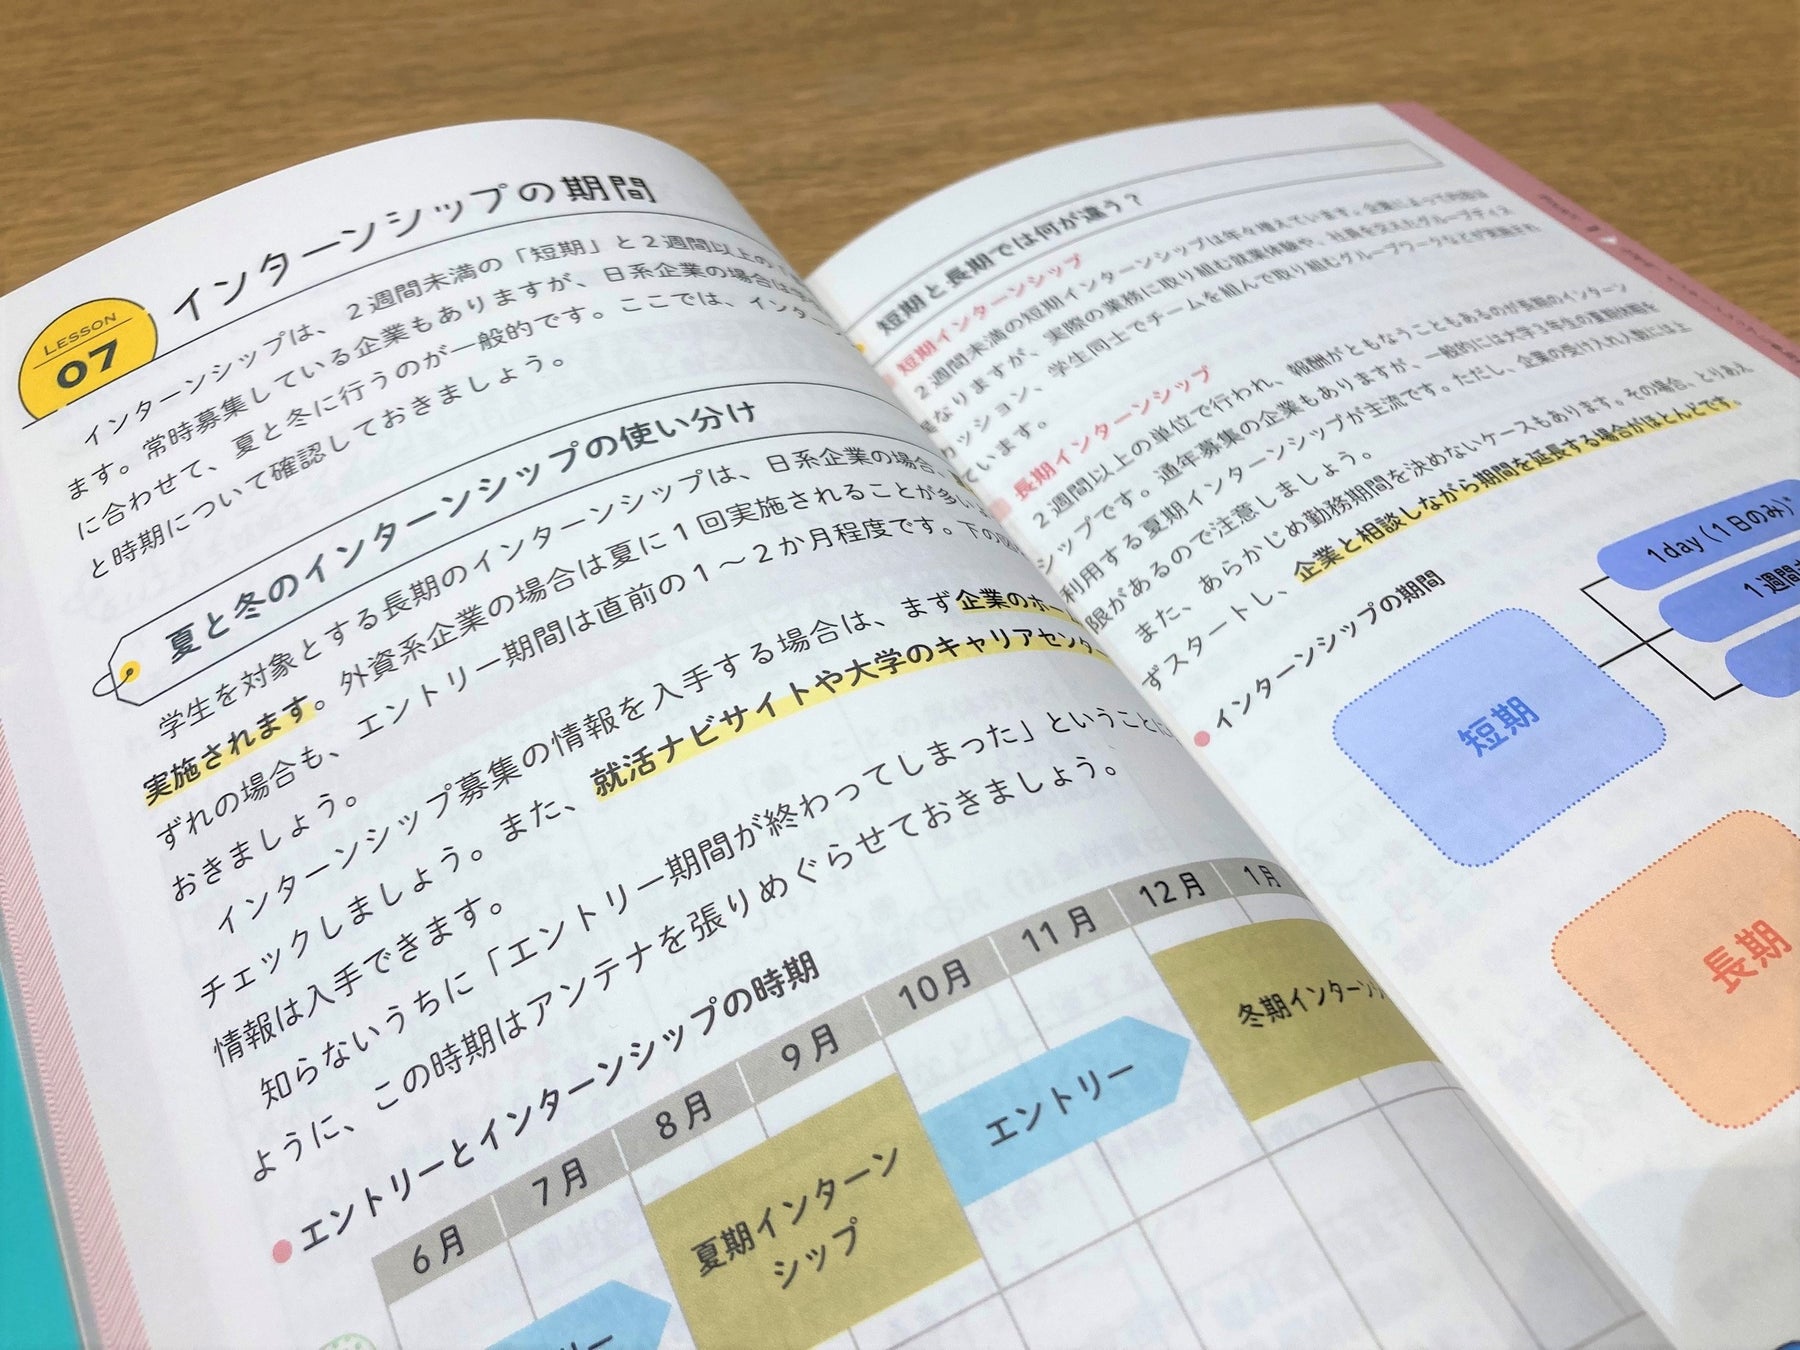 LESSON
07
インターンシップの期間
インターンシップは、2週間未満の「短期」と2週間以上の
ます。常時募集している企業もありますが、日系企業の場合は
に合わせて、夏と冬に行うのが一般的です。ここでは、インター
と時期について確認しておきましょう。
夏と冬のインターンシップの使い分け
学生を対象とする長期のインターンシップは、日系企業の場合、
実施されます。外資系企業の場合は夏に1回実施されることが多い
ずれの場合も、エントリー期間は直前の1〜2か月程度です。下の
おきましょう。
インターンシップ募集の情報を入手する場合は、まず企業のホー
チェックしましょう。また、就活ナビサイトや大学のキャリアセンター
情報は入手できます。
知らないうちに「エントリー期間が終わってしまった」ということに
ように、この時期はアンテナを張りめぐらせておきましょう。
エントリーとインターンシップの時期
6月 7月 8月 9月 10月 11月 12月 1月
リー
夏期インターン
シップ
エントリー
冬期インターン
短期と長期では何が違う?
短期インターンシップ
2週間未満の短期インターンシップは年々増えています。企業によって内容は
なりますが、実際の業務に取り組む就業体験や、社員を交えたグループディス
ッション、学生同士でチームを組んで取り組むグループワークなどが実施され
ています。
長期インターンシップ
2週間以上の単位で行われ、報酬がともなうこともあるのが長期のインターン
シップです。通年募集の企業もありますが、一般的には大学3年生の夏期休暇を
利用する夏期インターンシップが主流です。ただし、企業の受け入れ人数には上
限があるので注意しましょう。
また、あらかじめ勤務期間を決めないケースもあります。その場合、とりあえ
ずスタートし、企業と相談しながら期間を延長する場合がほとんどです。
インターンシップの期間
短期
1day(1日のみ)*
1週間
長期